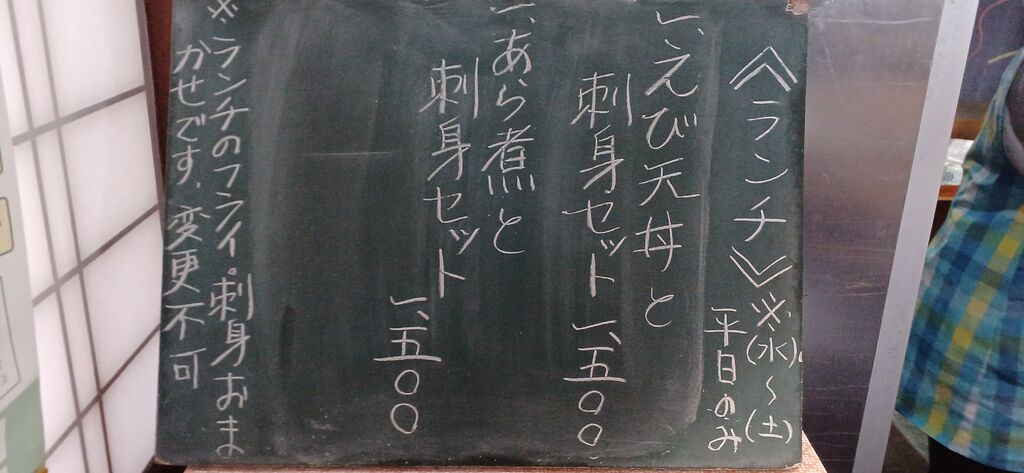 《ランチ》※(水)〜(土)
平日のみ
一、えび天丼と
刺身セット 一、五〇〇
一、あら煮と
刺身セット 一、五〇〇
※ランチのフライ。刺身おま
かせです、変更不可